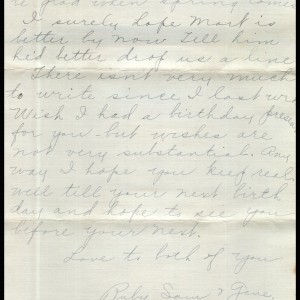 be glad when spring comes
I surely hope Mart is
better by now Tell him
he'd better drop us a line
There isn't very much
to write since I last wro
Wish I had a birthday present
for you but wishes are
not very substantial. Any
way I hope you keep real
well till your next birth
day and hope to see you
before your next.
Love to both of you
Ruby Sam & Gene.